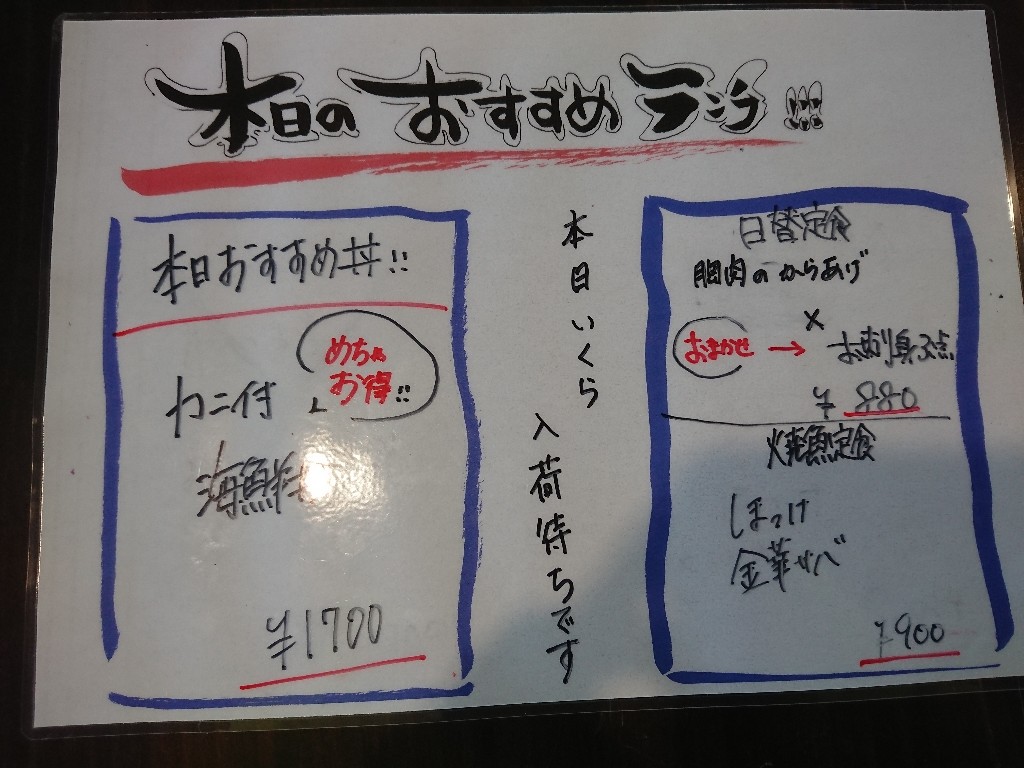 本日のおすすめランチ!!!
本日おすすめ丼!!
めちゃ
お得!!
カニ付
海鮮
¥1700
本日いくら入荷待ちです
日替定食
胸肉のからあげ
×
おまかせ → お刺身3点
¥880
焼魚定食
しまっけ
金華サバ
¥900